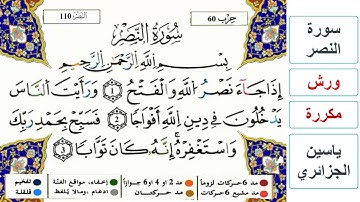 النصر 110
حزب 60
سُورَةُ النَّصْرِ
بِسْمِ اللَّهِ الرَّحْمَٰنِ الرَّحِيمِ
إِذَا جَآءَ نَصْرُ اللَّهِ وَالْفَتْحُ ① وَرَأَيْتَ النَّاسَ
يَدْخُلُونَ فِي دِينِ اللَّهِ أَفْوَاجًا ② فَسَبِّحْ بِحَمْدِ رَبِّكَ
وَاسْتَغْفِرْهُ إِنَّهُ كَانَ تَوَّابًا ③
مد 6 حركات لزوما
مد 2 أو 4 أو 6 جوازا
إخفاء، ومواقع الغنة
تفخيم
مد مشبع 6 حركات
مد حركتان
إدغام، ومالا يلفظ
قلقلة
سورة
النصر
ورش
مكررة
ياسين
الجزائري